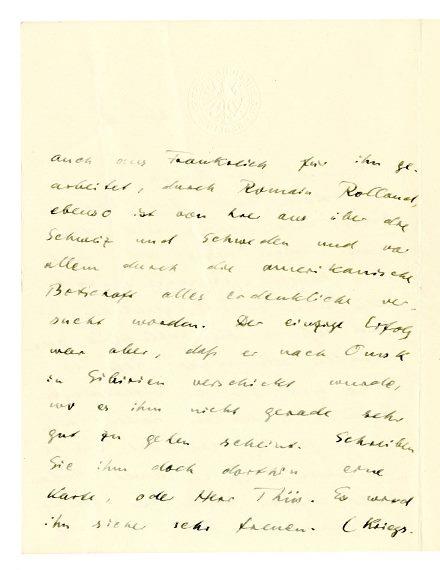 auch aus Frankreich für ihn ge-
arbeitet, durch Romain Rolland,
ebenso ist von hier aus über die
Schweiz und Schweden und vor
allem durch die amerikanische
Botschaft alles erdenkliche ver-
sucht worden. Der einzige Erfolg
war aber, daß er nach Omsk
in Sibirien verschickt wurde,
wo es ihm nicht gerade sehr
gut zu gehen scheint. Schreiben
Sie ihm doch dorthin eine
Karte, oder Herr Thiis. Es wird
ihn sicher sehr freuen. (Kriegs-